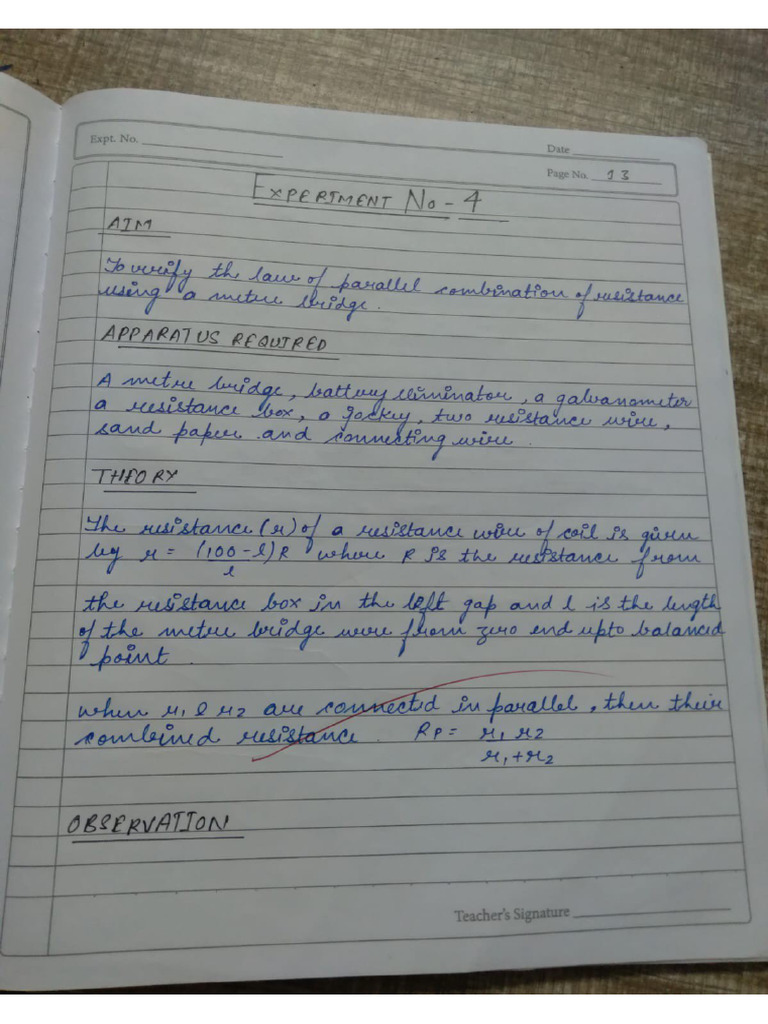 Expt. No.
Date
Page No. 13
EXPERIMENT No - 4
AIM
To verify the law of parallel combination of resistance
using a metre bridge.
APPARATUS REQUIRED
A metre bridge, battery eliminator, a galvanometer
a resistance box, a jockey, two resistance wire,
sand paper and connecting wire.
THEORY
The resistance (r) of a resistance wire of coil is given
by r = (100-l)R where R is the resistance from
l
the resistance box in the left gap and l is the length
of the metre bridge wire from zero end upto balanced
point.
when r1 & r2 are connected in parallel, then their
combined resistance. RP = r1 r2
r1+r2
OBSERVATION
Teacher's Signature